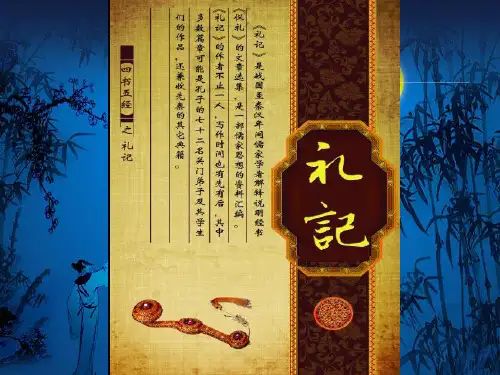 礼記
《礼记》是战国至秦汉年间儒家学者解释说明经书
《仪礼》的文章选集，是一部儒家思想的资料汇编。
《礼记》的作者不止一人，写作时间也有先有后，其中
多数篇章可能是孔子的七十二名关门弟子及其学生
们的作品，还兼收先秦的其它典籍。
【四书五经】之 礼记